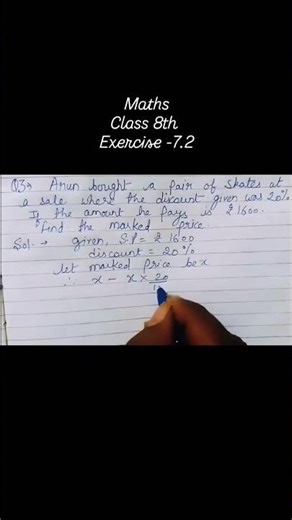 Maths
Class 8th
Exercise -7.2
Q3→ Arun bought a pair of skates at
a sale where the discount given was 20%
If the amount he pays is ₹ 1600.
Find the marked price.
Sol. → given, S.P = ₹ 1600
discount = 20%
let marked price be x
∴ x - x × 20